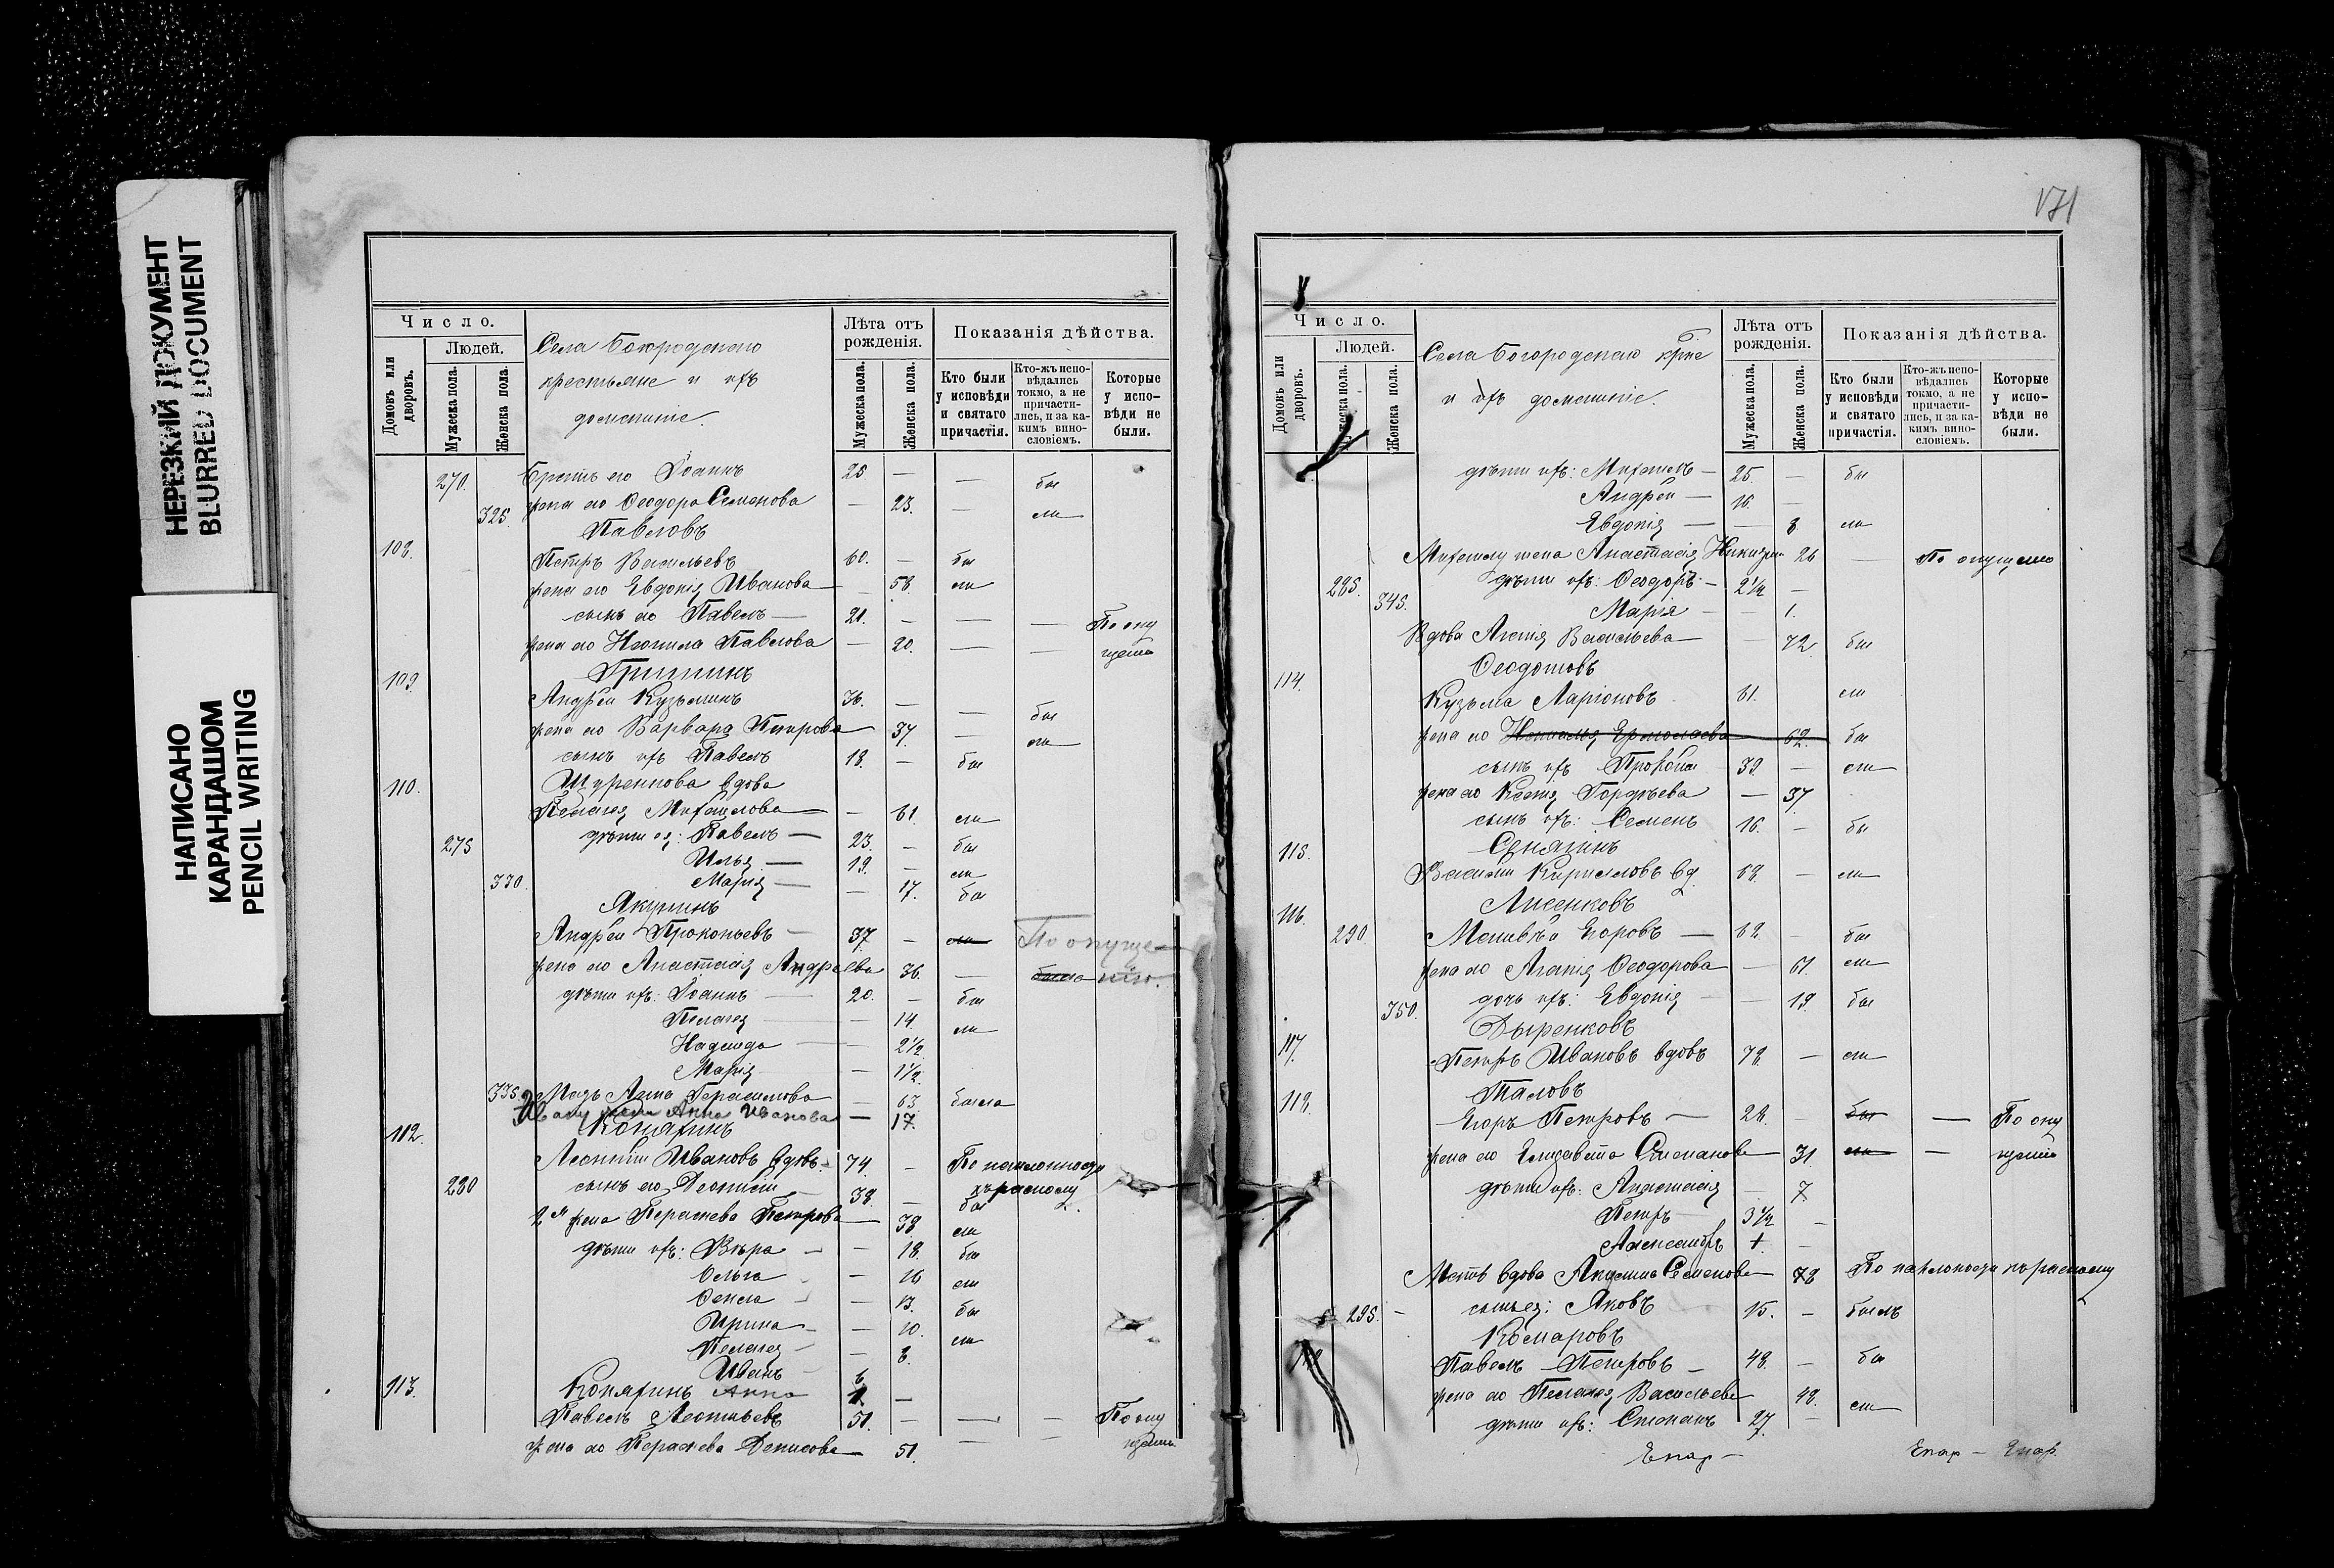 НЕРЕЗКИЙ ДОКУМЕНТ
BLURRED DOCUMENT
НАПИСАНО
КАРАНДАШОМ
PENCIL WRITING
Число.
Людей.
Домовъ или дворовъ.
Мужеска пола.
Женска пола.
Села Богородскаго
крестьяне и ихъ
домашніе.
Лѣта отъ рожденія.
Мужеска пола.
Женска пола.
Показанія дѣйства.
Кто были у исповѣди и святаго причастія.
Кто-жъ исповѣдались токмо, а не причастились, и за какимъ винословіемъ.
Которые у исповѣди не были.
270. Братъ его Іоаннъ 25 — — бы
325. жена его Ѳеодора Семенова — 23. — ли
Павловъ
108. Петръ Васильевъ 60. — бы
жена его Евдокія Иванова — 58. ли
сынъ его Павелъ — 21. — — — По опу
жена его Павлова — 20. — — щенію
109. Гришинъ
Андрей Кузьминъ 36. — — бы
жена его Варвара Петрова — 37. — ли
сынъ ихъ Павелъ 18. — бы
110. вдова
Пелагея Михайлова — — 61. ли
275 дѣти ея: Павелъ — 23. — бы
Илья — 19. — ли
330. Марія — — 17. бы
Якунинъ
Андрей Прокопьевъ — 37. — ли По опуще-
жена его Анастасія Андреева 36. — была нію.
дѣти ихъ: Іоаннъ — 20. — бы
Пелагея — — 14. ли
Надежда — — 2½
Марія — 1½
335. Мать Анна Герасимова — 63. была
Ивану жена Анна Иванова — 17
112. Конягинъ
Леонтій Ивановъ вдовъ. 74. — По наклонности
280 сынъ его Діонисій 38. — къ расколу бы
2я жена Параскева Петрова — 38 ли
дѣти ихъ: Вѣра — — 18. бы
Ольга — 16 ли
— 13. бы
Ирина — — 10. ли
Пелагея — — 8.
Иванъ 6
113. Конягинъ Анна 1 —
Павелъ Леонтьевъ 51. — — — По опу
жена его Параскева Денисова — 51. — — щенію
171
Число.
Людей.
Домовъ или дворовъ.
Мужеска пола.
Женска пола.
Села Богородскаго крне
и ихъ домашніе.
Лѣта отъ рожденія.
Мужеска пола.
Женска пола.
Показанія дѣйства.
Кто были у исповѣди и святаго причастія.
Кто-жъ исповѣдались токмо, а не причастились, и за какимъ винословіемъ.
Которые у исповѣди не были.
дѣти ихъ: Михаилъ — 25. — бы
Андрей — 16. —
Евдокія — — 8 ли
Михаилу жена Анастасія 26 — По опущенію
285. дѣти ихъ: Ѳеодоръ — 2½ —
345. Марія — — 1.
Вдова Агапія Васильева — — 72 бы
114. Ѳедотовъ
Кузьма Ларіоновъ 61. ли
жена его Наталья Ермолаева 62. бы
сынъ ихъ Прокопій 39. — ли
жена его Гордѣева — 37
сынъ ихъ: Семенъ 16. — бы
115. Сенягинъ
Василій Кирилловъ вд. 68. — ли
116. Лисенковъ
290. Егоровъ — 62. — бы
жена его Агапія Ѳеодорова — 61. ли
350. дочь ихъ: Евдокія — — 19. бы
Дыренковъ
117. Петръ Ивановъ вдовъ 78. — ли
118. Таловъ
Егоръ Петровъ — 28. — бы — По опу
жена его Елизавета Степанова — 31. ли — щенію
дѣти ихъ: Анастасія — 7
Петръ — 3½ —
Александръ +. —
Мать вдова Акулина Семенова — 78 По наклоности къ расколу
295. сынъ ея: Яковъ 15. — былъ
Комаровъ
119 Павелъ Петровъ — 48. — бы
жена его Пелагея Васильева 48. ли
дѣти ихъ: Степанъ 27. —
Епар — Епар — Епар.